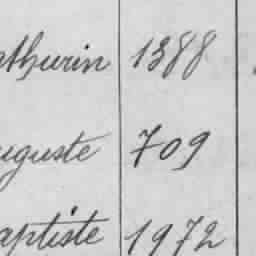 athurin 1388
uguste 709
aptiste 1972